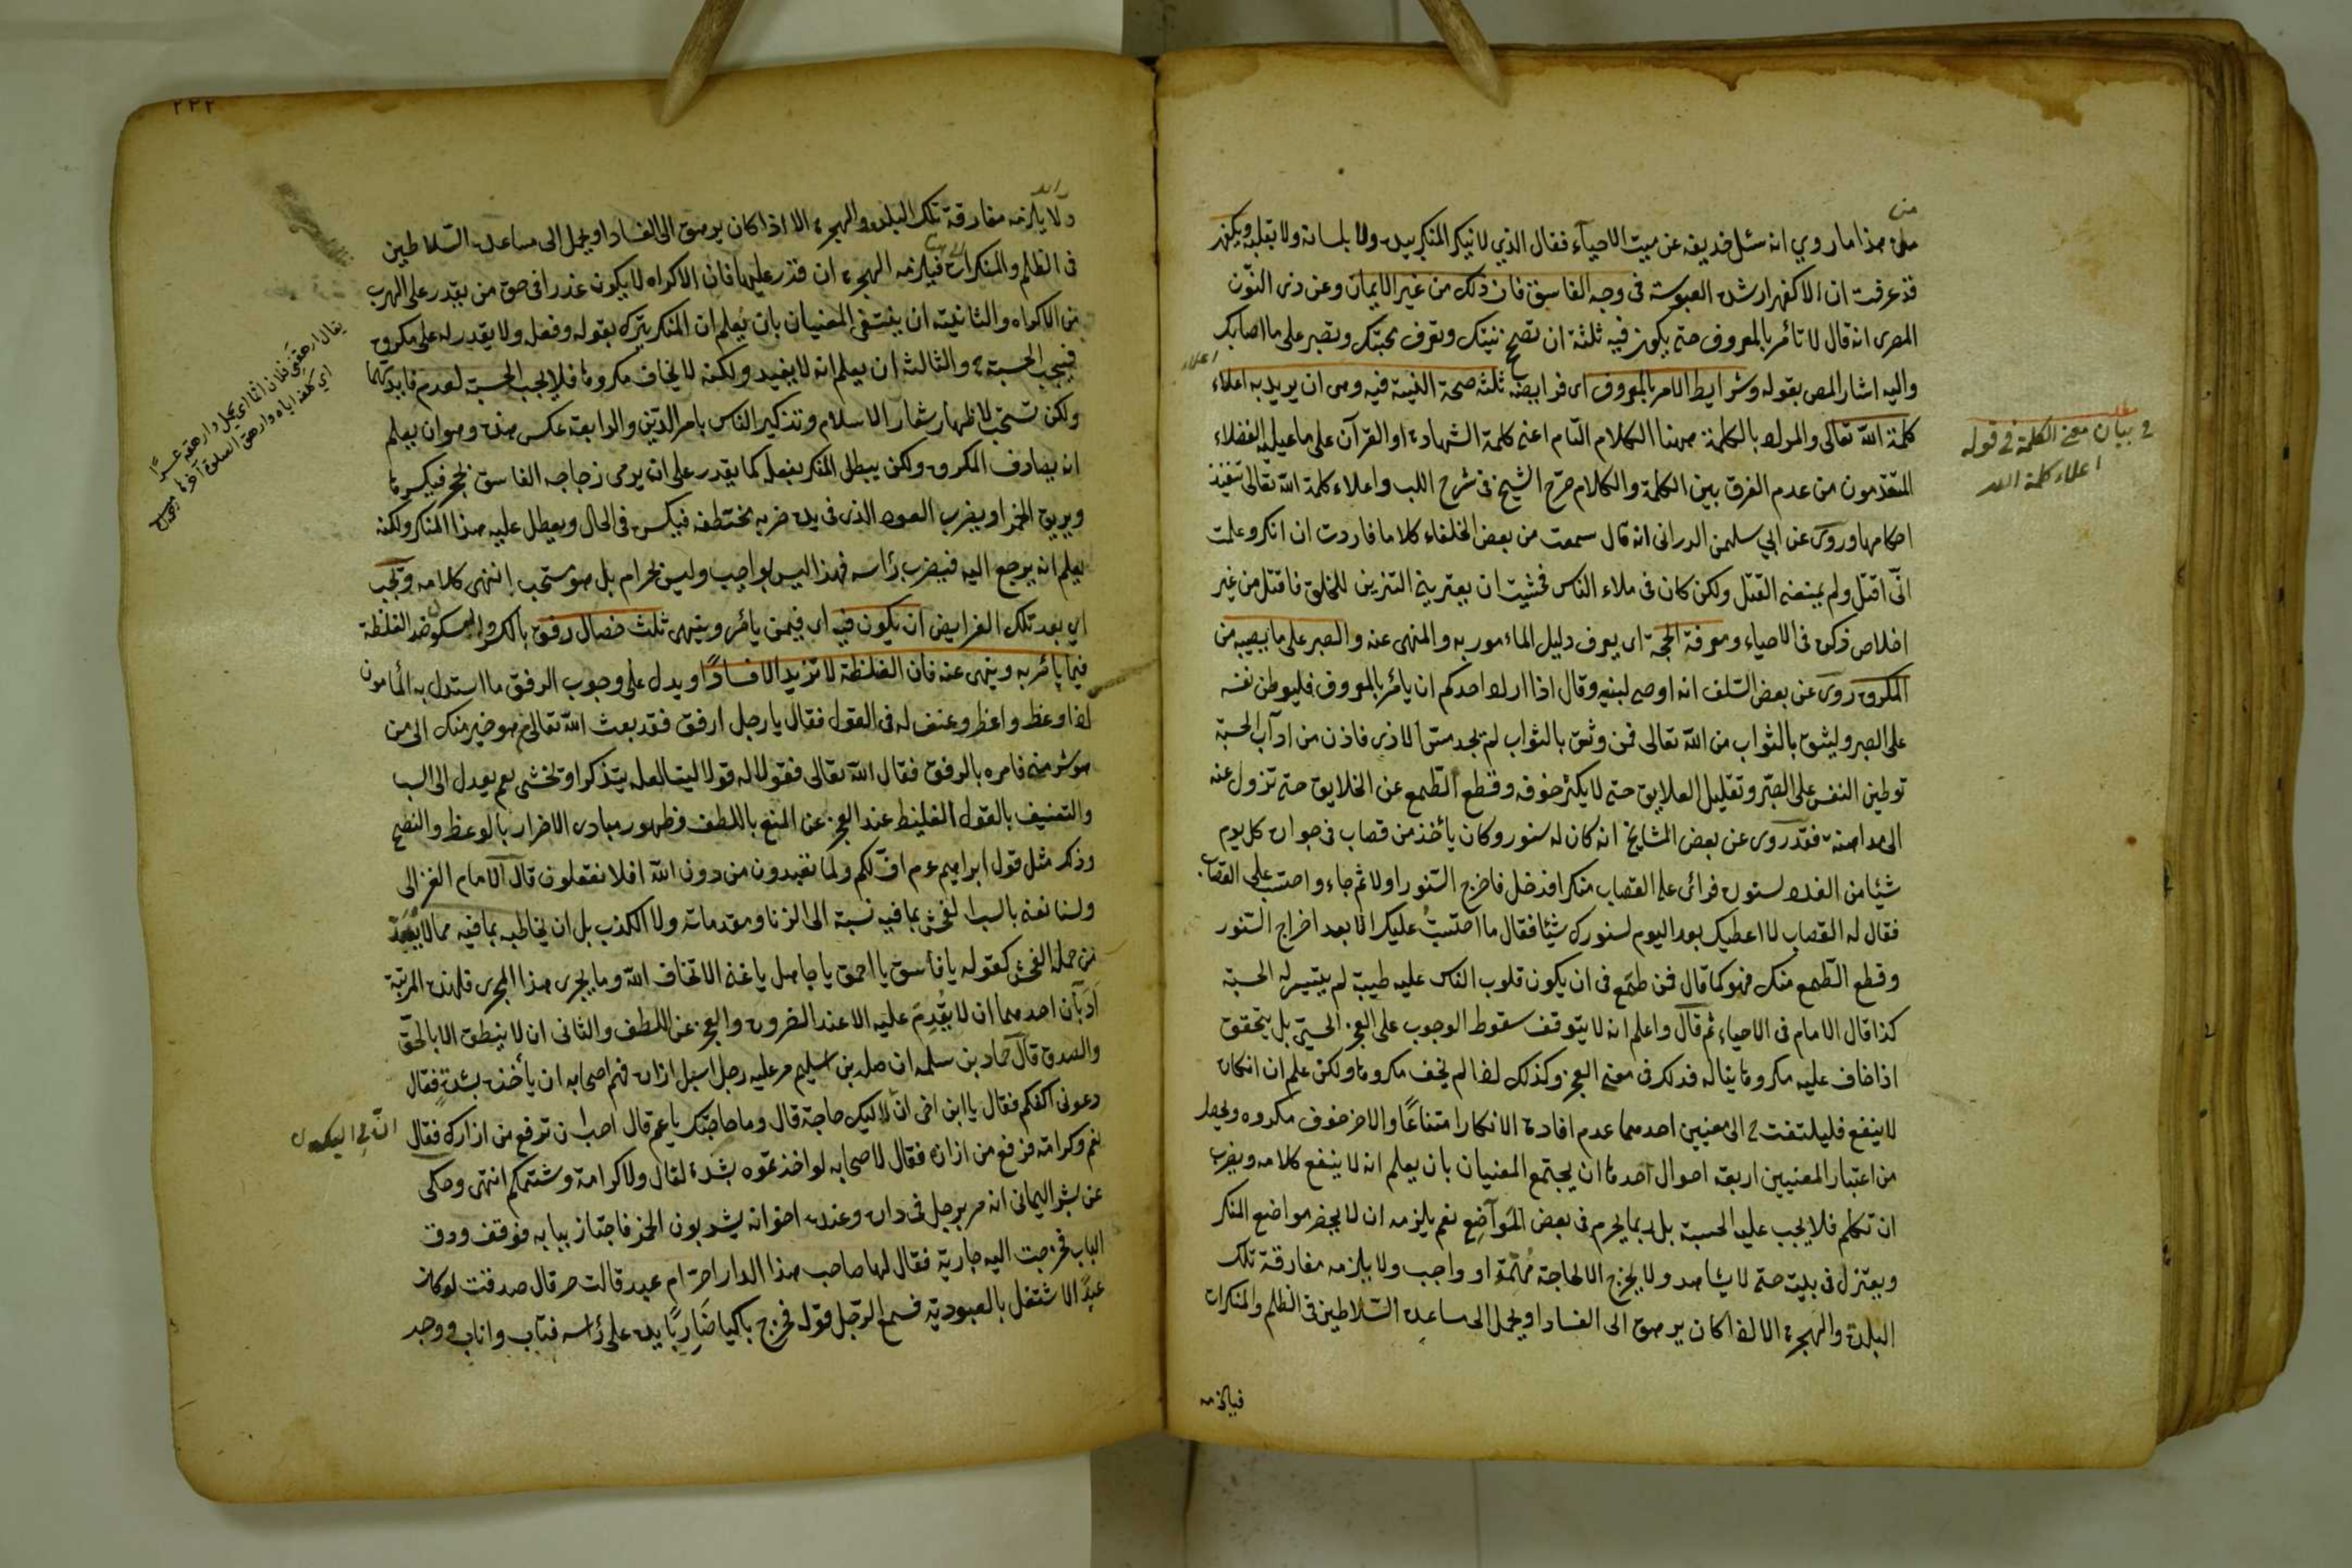 على هذا ما روي انه سئل حذيفه عن ميت الاحياء فقال الذي لا ينكر المنكر بيده ولا بلسانه ولا بقلبه
قد عرفت ان الاكفهرار شدة العبوسة في وجه الفاسق فان ذلك من غير الايمان وعن ذى النّون
المصرى انه قال لا تأمر بالمعروف حتى يكون فيه ثلثة ان تصحّ نيتك وتعرف حجتك وتصبر على ما اصابك
واليه اشار المص بقوله وشرايط الامر بالمعروف اى فرايضه ثلثة صحة النية فيه وهى ان يريد به اعلاء
كلمة الله تعالى والمراد بالكلمة ههنا الكلام التام اعنى كلمة الشهادة او القرآن على ما عليه الفضلاء
المتقدمون من عدم الفرق بين الكلمة والكلام صرّح الشيخ فى شرح اللب واعلاء كلمة الله تعالى تنفيذ
احكامها وروى عن ابي سليمن الدرانى انه قال سمعت من بعض الخلفاء كلاما فاردت ان انكر وعلمت
انّى اقتل ولم يمنعنى القتل ولكن كان فى ملاء الناس فخشيت ان يعترينى التزين للخلق فاقتل من غير
اخلاص ذكره فى الاحياء ومعرفة الحجة اى يعرف دليل الماء مور به والمنهى عنه والصبر على ما يصيبه من
المكروه روى عن بعض السّلف انه اوصى لبنيه وقال اذا اراد احدكم ان يأمر بالمعروف فليوطن نفسه
على الصبر وليثق بالثواب من الله تعالى فمن وثق بالثواب لم يجد مسّ الاذى فاذن من اداب الحسبة
توطين النفس على الصّبر وتقليل العلايق حتى لا يكثر خوفه وقطع الطّمع عن الخلايق حتى تزول عنه
المداهنة فقد روى عن بعض المشايخ انه كان له سنور وكان يأخذ من قصاب فى جواره كل يوم
شيئا من الغدد لسنوره فرائى على القصاب منكرا فدخل فاخرج السّنور اولا ثم جاء واحتسب على القصاب
فقال له القصاب لا اعطيك بعد اليوم لسنورك شيئا فقال ما احتسبتُ عليك الا بعد اخراج السّنور
وقطع الطّمع منك فهو كما قال فمن طمّع فى ان يكون قلوب الناس عليه طيبة لم يتيسر له الحسبة
كذا قال الامام فى الاحياء ثم قال واعلم انه لا يتوقف سقوط الوجوب على العجز الحسّى بل يتحقق
اذا خاف عليه مكروها يناله فذلك فى معنى العجز وكذلك اذا لم يخف مكروها ولكن علم ان انكاره
لا ينفع فليلتفت الى معنيين احدهما عدم افادة الانكار امتناعًا والاخر خوف مكروه ويحصل
من اعتبار المعنيين اربعة احوال احدها ان يجتمع المعنيان بان يعلم انه لا ينفع كلامه ويضرب
ان تكلم فلا يجب عليه الحسبة بل ربما يحرم فى بعض المواضع نعم يلزمه ان لا يحضر مواضع المنكر
ويعتزل فى بيته حتى لا يشاهد ولا يخرج الا لحاجة مُهِمّة او واجب ولا يلزمه مفارقة تلك
البلدة والهجرة الا اذا كان يرهق الى الفساد او يحمل الى مساعدة السّلاطين فى الظلم والمنكرات
فيلزمه
فى بيان معنى الكلمة فى قوله
اعلاء كلمة الله
٢٢٢
ولا يلزمه مفارقة تلك البلدة والهجرة الا اذا كان يرهق الى الفساد او يحمل الى مساعدة السّلاطين
فى الظلم والمنكرات فيلزمه الهجرة ان قدر عليها فان الاكراه لا يكون عذرا فى حق من يقدر على الهرب
من الاكراه والثانية ان ينتفى المعنيان بان يعلم ان المنكر يترك بقوله وفعله ولا يقدر له على مكروه
فيجب الحسبة والثالث ان يعلم انه لا يفيد ولكنه لا يخاف مكروها فلا يجب الحسبة لعدم فايدتها
ولكن تستحب لاظهار شعار الاسلام وتذكير الناس بامر الدّين والرابعة عكس هذه وهو ان يعلم
انه يصادف المكروه ولكن يبطل المنكر بفعله كما يقدر على ان يرمى زجاجة الفاسق بحجر فيكسرها
ويريق الخمر او يضرب العود الذى فى يده ضربه مختطفة فيكسره فى الحال ويعطل عليه هذا المنكر ولكنه
يعلم انه يرجع اليه فيضرب رأسه فهذا ليس بواجب وليس بحرام بل هو مستحب انتهى كلامه ويجب
اي بعد تلك الفرايض ان يكون فيه اي فيمن يأمر وينهى ثلث خصال رفق بالكسر والسكون ضد الغلظة
فيما يأمر به وينهى عنه فان الغلظة لا تزيد الا فسادًا ويدل على وجوب الرفق ما استدل به المأمون
اذا وعظ واعظ وعنف له فى القول فقال يا رجل ارفق فقد بعث الله تعالى من هو خير منك الى من
هو شر منى فامره بالرفق فقال الله تعالى فقولا له قولا لينا لعله يتذكر او يخشى نعم يعدل الى السب
والتعنيف بالقول الغليظ عند العجز عن المنع باللطف وظهور مبادى الاضرار بالوعظ والنصح
وذلك مثل قول ابراهيم عم افّ لكم ولما تعبدون من دون الله افلا تعقلون قال الامام الغزالى
ولسنا نعنى بالسب الفحش بما فيه نسبة الى الزنا ومقدماته ولا الكذب بل ان يخاطبه بما فيه مما لا يُعَدّ
من جملة الفحش كقوله يا فاسق يا احمق يا جاهل يا غبى الا تخاف الله وما يجرى هذا المجرى فلهذه المرتبة
اَدبان احدهما ان لا يُقْدِمَ عليه الا عند الضرورة والعجز عن اللطف والثانى ان لا ينطق الا بالحق
والصدق قال حماد بن سلمه ان صلة بن اسليم مر عليه رجل اسبل ازاره فهم اصحابه ان يأخذه بشدة فقال
دعونى اكفكم فقال يا ابن اخى انّ لى اليك حاجة قال وما حاجتك يا عم قال احب ان ترفع من ازارك فقال
نعم وكرامة فرفع من ازاره فقال لاصحابه لو اخذتموه بشدة لقال ولا كرامة وشتمكم انتهى وحكى
عن بشر اليمانى انه مر برجل فى داره وعنده اخوانه يشربون الخمر فاجتاز ببابه فوقف ودق
الباب فخرجت اليه جارية فقال لها صاحب هذا الدار احرّ ام عبد قالت حر قال صدقت لو كان
عبدًا لاشتغل بالعبوديّة فسمع الرّجل قوله فخرج باكيا ضَارِبًا يده على رأسه فتاب واناب ووجد
يقال ارهقنى فلان اثما اي حمل وارهقه عسرا
اي كلفه اياه وارهق الصلوة اخرها